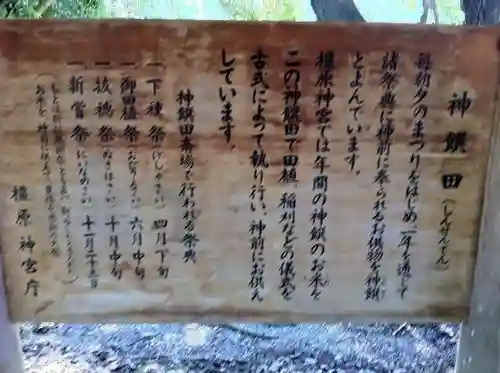 神饌田(しんせんでん)
毎朝夕のまつりをはじめ、一年を通じて
諸祭典に神前に奉られるお供物を神饌
とよんでいます。
橿原神宮では年間の神饌のお米を
この神饌田で田植、稲刈などの儀式を
古式によって執り行い、神前にお供え
しています。
神饌田斎場で行われる祭典
一 下種祭(げしゅさい) 四月下旬
一 御田植祭(おたうえさい) 六月中旬
一 抜穂祭(ぬきほさい) 十月中旬
一 新嘗祭(にいなめさい) 十一月二十三日
お米を神前に供えて
橿原神宮庁